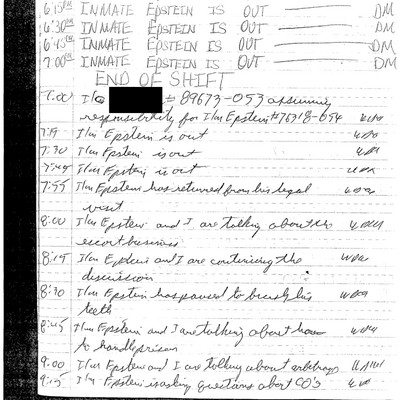 6:15PM INMATE EPSTEIN IS OUT DM
6:30PM INMATE EPSTEIN IS OUT DM
6:45PM INMATE EPSTEIN IS OUT DM
7:00PM INMATE EPSTEIN IS OUT DM
END OF SHIFT
7:00 I/C # 89673-053 assuming
responsibility for I/m Epstein #76318-054
7:15 I/m Epstein is out
7:30 I/m Epstein is out
7:45 I/m Epstein is out
7:55 I/m Epstein has returned from his legal
visit
8:00 I/m Epstein and I are talking about the
escort business
8:15 I/m Epstein and I are continuing the
discussion
8:30 I/m Epstein has paused to brush his
teeth
8:45 I/m Epstein and I are talking about how
to handle prison
9:00 I/m Epstein and I are talking about arbitrage
9:15 I/m Epstein is asking questions about CO's